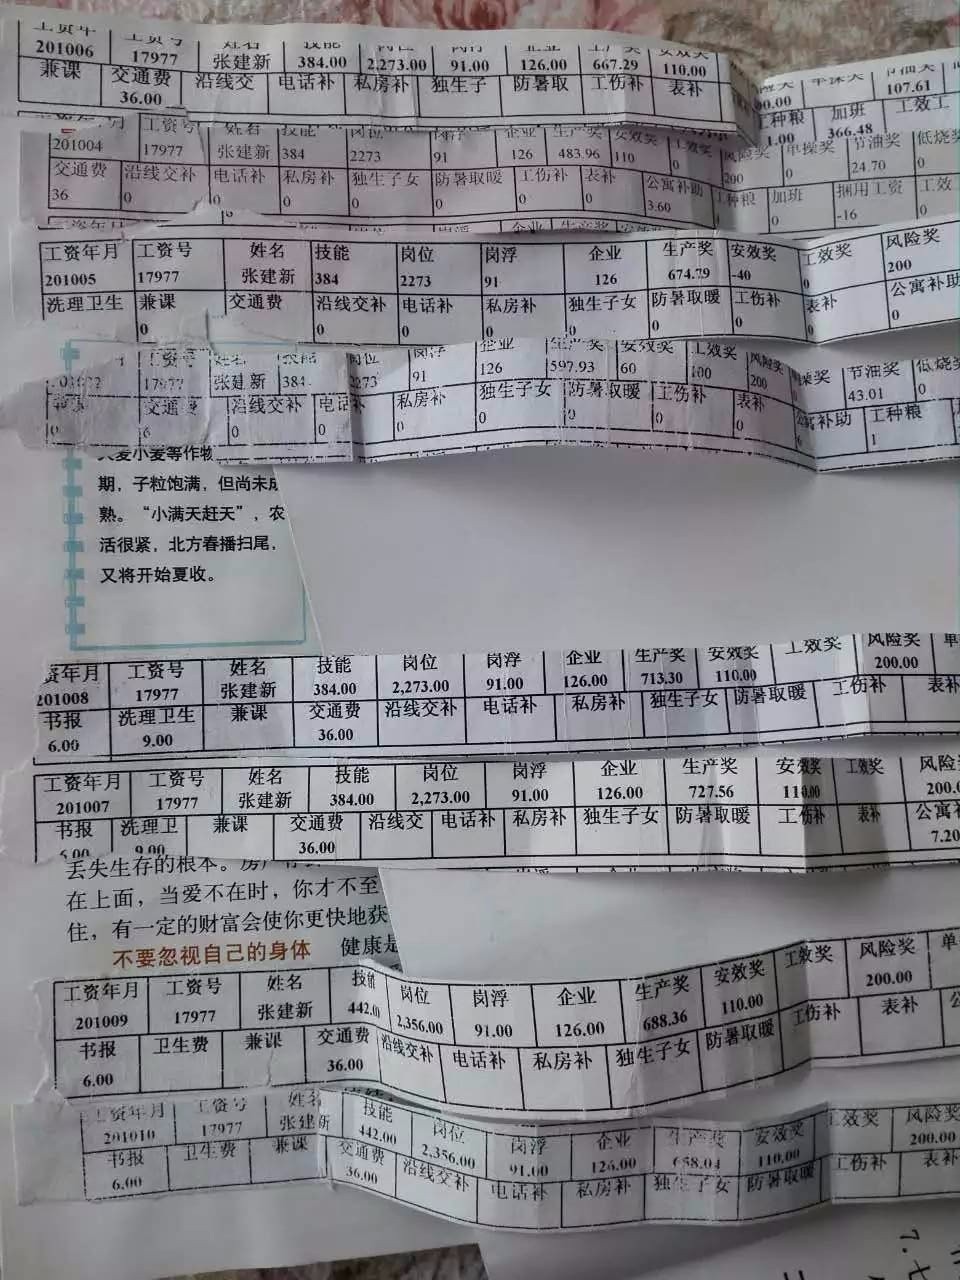 工资年 工资号 姓名 技能 岗位 岗浮 企业 生产奖 安效奖
201006 17977 张建新 384.00 2,273.00 91.00 126.00 667.29 110.00
兼课 交通费 沿线交 电话补 私房补 独生子 防暑取 工伤补 表补
36.00
节油奖
107.61
工种粮 加班 工效工
1.00 366.48
工资年月 工资号 姓名 技能 岗位 岗浮 企业 生产奖 安效奖 工效奖 风险奖 单操奖 节油奖 低烧奖
201004 17977 张建新 384 2273 91 126 483.96 110 0 200 0 24.70 0
交通费 沿线交补 电话补 私房补 独生子女 防暑取暖 工伤补 表补 公寓补助 工种粮 加班 捆用工资 工效
36 0 0 0 0 0 0 0 3.60 0 -16 0
工资年月 工资号 姓名 技能 岗位 岗浮 企业 生产奖 安效奖 工效奖 风险奖
201005 17977 张建新 384 2273 91 126 674.79 -40 0 200
洗理卫生 兼课 交通费 沿线交补 电话补 私房补 独生子女 防暑取暖 工伤补 表补 公寓补助
0 0 0 0 0 0 0 0 0
工资号 姓名 技能 岗位 岗浮 企业 生产奖 安效奖 工效奖 风险奖 单操奖 节油奖 低烧奖
17977 张建新 384 2273 91 126 597.93 60 100 200 43.01 0
交通费 沿线交补 电话补 私房补 独生子女 防暑取暖 工伤补 表补 公寓补助 工种粮
0 6 0 0 0 0 0 0 0 1
大麦小麦等作物
期，子粒饱满，但尚未成
熟。“小满天赶天”，农
活很紧，北方春播扫尾，
又将开始夏收。
资年月 工资号 姓名 技能 岗位 岗浮 企业 生产奖 安效奖 工效奖 风险奖 单
201008 17977 张建新 384.00 2,273.00 91.00 126.00 713.30 110.00 200.00
书报 洗理卫生 兼课 交通费 沿线交补 电话补 私房补 独生子女 防暑取暖 工伤补 表补
6.00 9.00 36.00
工资年月 工资号 姓名 技能 岗位 岗浮 企业 生产奖 安效奖 工效奖 风险奖
201007 17977 张建新 384.00 2,273.00 91.00 126.00 727.56 110.00 200.0
书报 洗理卫 兼课 交通费 沿线交 电话补 私房补 独生子女 防暑取暖 工伤补 表补 公寓补
6.00 9.00 36.00 7.20
丢失生存的根本。房
在上面，当爱不在时，你才不至
住，有一定的财富会使你更快地获
不要忽视自己的身体 健康是
工资年月 工资号 姓名 技能 岗位 岗浮 企业 生产奖 安效奖 工效奖 风险奖 单
201009 17977 张建新 442.0 2,356.00 91.00 126.00 688.36 110.00 200.00
书报 卫生费 兼课 交通费 沿线交补 电话补 私房补 独生子女 防暑取暖 工伤补 表补 公
6.00 36.00
工资年月 工资号 姓名 技能 岗位 岗浮 企业 生产奖 安效奖 工效奖 风险奖
201010 17977 张建新 442.00 2,356.00 91.00 126.00 658.04 110.00 200.00
书报 卫生费 兼课 交通费 沿线交补 电话补 私房补 独生子女 防暑取暖 工伤补 表补
6.00 36.00